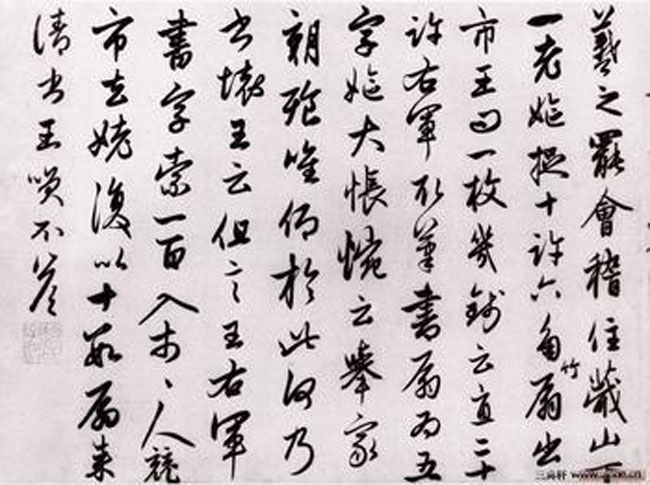 羲之罷會稽住蕺山下
一老嫗捉十許六角竹扇出
市王問一枚幾錢云直二十
許右軍取筆書扇為五
字嫗大悵惋云舉家
朝飡唯仰於此何乃
書壞王云但言王右軍
書字索一百入市々人競
市去姥復以十數扇來
請書王笑不答